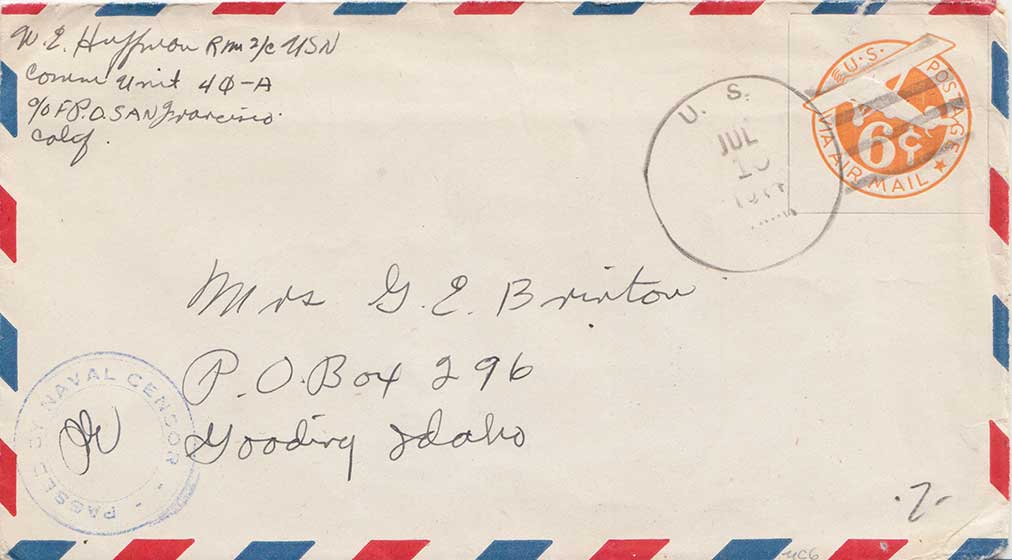 W. E. Huffman Rm 2/c USN
Comm Unit 40-A
c/o F.P.O. SAN Francisco
Calif.
U. S.
JUL
U.S. POSTAGE
6¢
VIA AIR MAIL
Mrs G. E. Brinton
P. O. Box 296
Gooding Idaho
PASSED BY NAVAL CENSOR
UC6